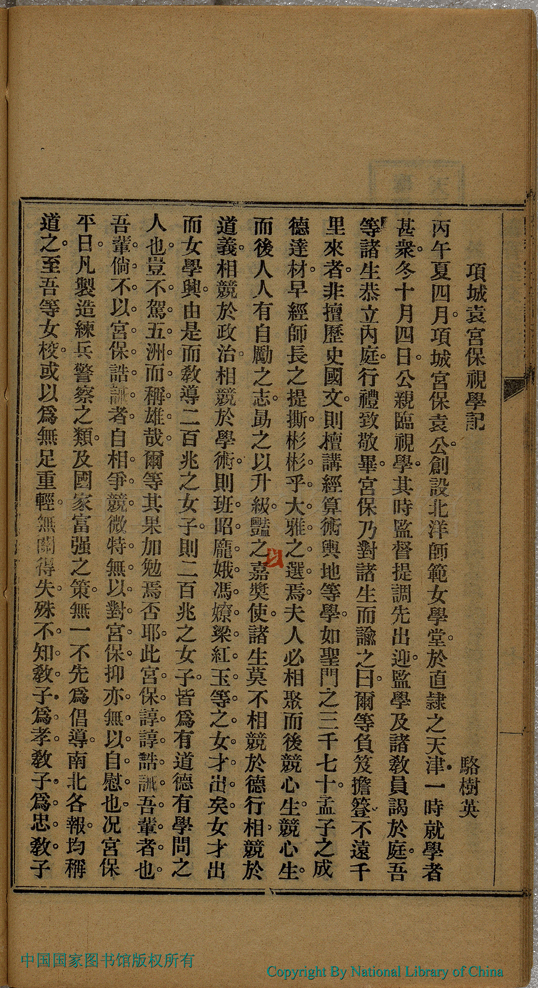 項城袁宮保視學記
駱樹英
丙午夏四月。項城宮保袁公。創設北洋師範女學堂。於直隸之天津。一時就學者
甚衆。冬十月四日。公親臨視學。其時監督提調先出迎。監學及諸教員謁於庭。吾
等諸生恭立內庭。行禮致敬畢。宮保乃對諸生而諭之曰。爾等負笈擔簦。不遠千
里來者。非擅歷史國文。則擅講經算術輿地等學。如聖門之三千七十。孟子之成
德達材。早經師長之提撕。彬彬乎大雅之選焉。夫人必相聚而後競心生。競心生
而後人人有自勵之志。勗之以升級。豔之以嘉奬。使諸生莫不相競於德行。相競於
道義。相競於政治。相競於學術。則班昭龐娥馮嫽梁紅玉等之女才出矣。女才出
而女學興。由是而教導二百兆之女子。則二百兆之女子。皆爲有道德有學問之
人也。豈不駕五洲而稱雄哉。爾等其果加勉焉否耶。此宮保諄諄誥誡吾輩者也。
吾輩倘不以宮保誥誡者自相爭競。微特無以對宮保。抑亦無以自慰也。况宮保
平日。凡製造練兵警察之類。及國家富强之策。無一不先爲倡導。南北各報均稱
道之。至吾等女校。或以爲無足重輕。無關得失。殊不知教子爲孝。教子爲忠。教子
中国国家图书馆版权所有
Copyright By National Library of China